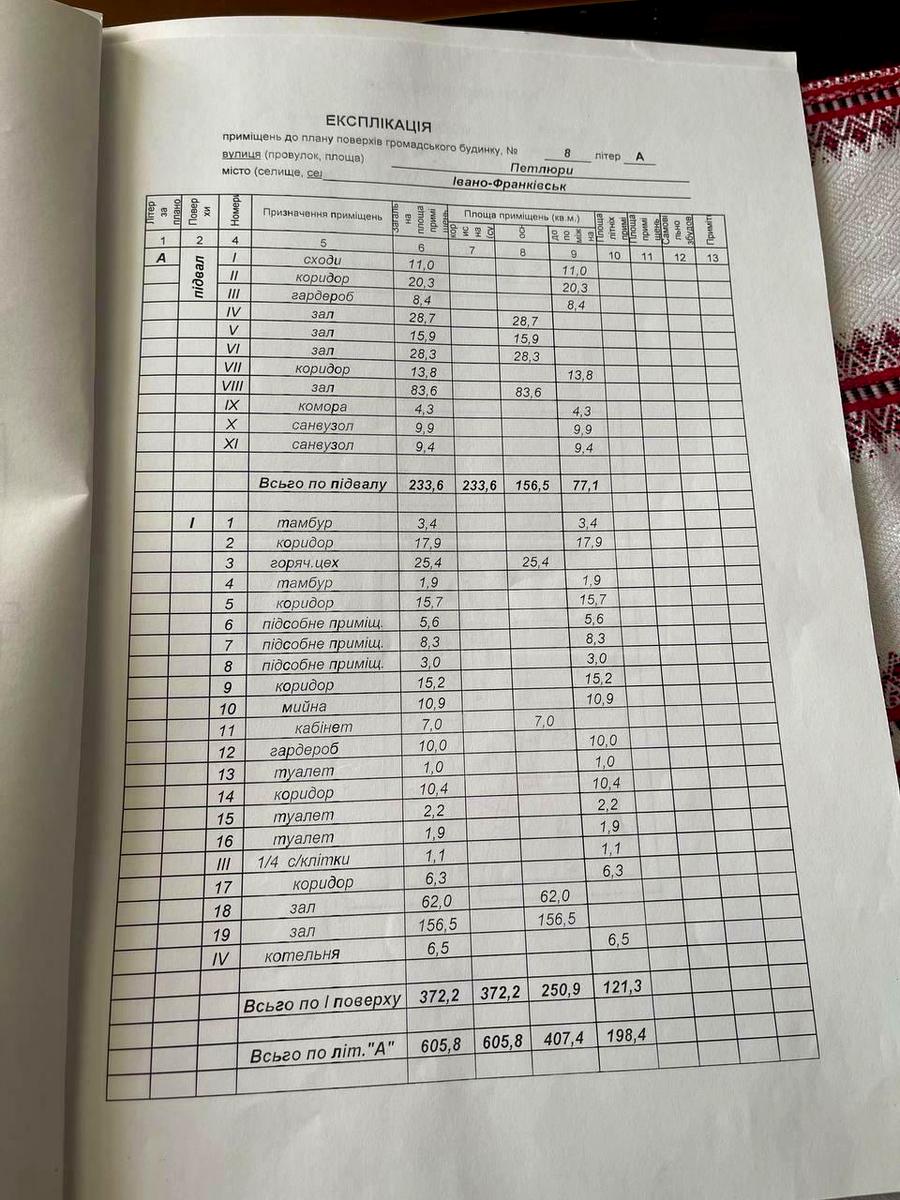 ЕКСПЛІКАЦІЯ
приміщень до плану поверхів громадського будинку, № 8 літер А
вулиця (провулок, площа) Петлюри
місто (селище, сел Івано-Франківськ
Літер за плано Повер хи Номери Призначення приміщень Загаль на площа примі щень Площа приміщень (кв.м.) Площа літніх примі Площа примі щень Самові льно збудов Приміт
кор ис на (су осн до по між на
1 2 4 5 6 7 8 9 10 11 12 13
А підвал I сходи 11,0 11,0
II коридор 20,3 20,3
III гардероб 8,4 8,4
IV зал 28,7 28,7
V зал 15,9 15,9
VI зал 28,3 28,3
VII коридор 13,8 13,8
VIII зал 83,6 83,6
IX комора 4,3 4,3
X санвузол 9,9 9,9
XI санвузол 9,4 9,4
Всьго по підвалу 233,6 233,6 156,5 77,1
I 1 тамбур 3,4 3,4
2 коридор 17,9 17,9
3 горяч.цех 25,4 25,4
4 тамбур 1,9 1,9
5 коридор 15,7 15,7
6 підсобне приміщ. 5,6 5,6
7 підсобне приміщ. 8,3 8,3
8 підсобне приміщ. 3,0 3,0
9 коридор 15,2 15,2
10 мийна 10,9 10,9
11 кабінет 7,0 7,0
12 гардероб 10,0 10,0
13 туалет 1,0 1,0
14 коридор 10,4 10,4
15 туалет 2,2 2,2
16 туалет 1,9 1,9
III 1/4 с/клітки 1,1 1,1
17 коридор 6,3 6,3
18 зал 62,0 62,0
19 зал 156,5 156,5
IV котельня 6,5 6,5
Всьго по I поверху 372,2 372,2 250,9 121,3
Всьго по літ."А" 605,8 605,8 407,4 198,4